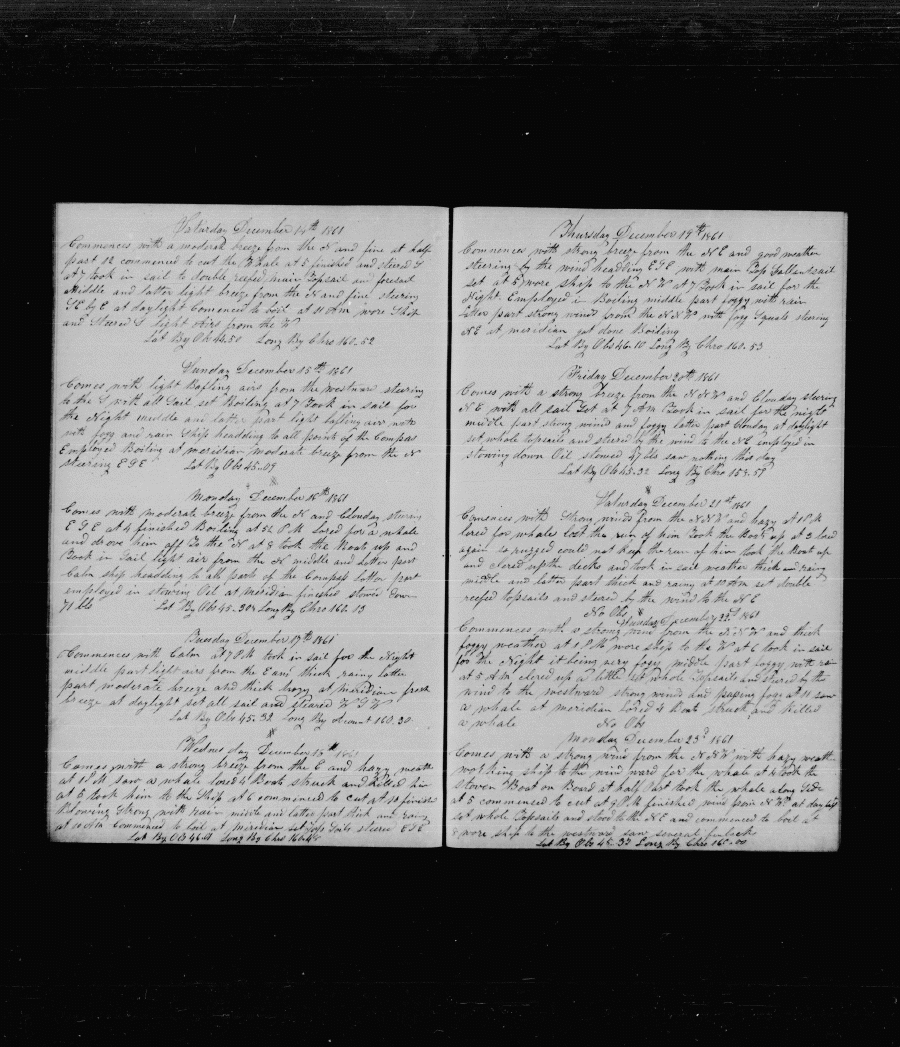 Saturday December 14th 1861
Commences with a moderate breeze from the N and fine at half
past 12 commenced to cut the Whale at 5 finished and steered S
at 7 took in sail to double reefed main Topsail and foresail
Middle and latter light breeze from the N and fine steering
SE by E at daylight Comenced to boil at 11 Am wore Ship
and Steered S light airs from the W
Lat By Ob 44.50 Long By Chro 160.52
Sunday December 15th 1861
Comes with light Bafling airs from the westward steering
to the S with all Sail set Boiling at 7 Took in sail for
the Night middle and latter part light bafling airs with
fogg and rain Ship headding to all points of the Compas
Employed Boiling at meridian moderate breeze from the N
steering ESE Lat By Obs 45-09
Monday December 16th 1861
Comes with moderate breeze from the N and Clouday steering
ESE at 4 finished Boiling at 5 1/2 P.M lored for a whale
and drove him off To the N at 8 took the Boat up and
Took in Sail light air from the N middle and latter part
Calm ship headding to all part of the Compass latter part
employed in stowing Oil at meridian finished stowed down
71 bbs Lat By Obs 45.30 Long By Chro 162.13
Tuesday December 17th 1861
Commences with Calm at 7 P.M took in sail for the Night
middle part light airs from the E and thick rainy latter
part moderate breeze and thick hazy at meridian fresh
breeze at daylight set all sail and steared WSW
Lat By Obs 45.32 Long By Acount 160.30
Wednesday December 18th 1861
Comes with a strong breeze from the E and hazy weather
at 1 P.M saw a whale lored 4 Boats struck and killed him
at 5 took him to the Ship at 6 commenced to cut at 10 finished
Blowing Strong with rain middle and latter part thick and rainy
at 10 Am Commenced to boil at Meridian set Tops Sails steered ESE
Lat By Obs 46.01 Long By Chro 160.45
Thursday December 19th 1861
Comences with strong breeze from the NE and good weather
steering by the wind headding ESE with main Top Gallant sail
set at 5 wore ship to the NW at 7 Took in sail for the
Night. Employed in Boiling middle part foggy with rain
latter part strong winds from the NNW with fogg Squals steering
NE at meridian got done Boiling
Lat By Obs 46-10 Long By Chro 160-53
Friday December 20th 1861
Comes with a strong breeze from the NNW and Clouday steering
NE with all sail Set at 7 AM Took in sail for the night
middle part strong wind and foggy latter part Clouday at daylight
set whole topsails and steered by the wind to the NE employed in
stowing down Oil stowed 47 bbs saw nothing this day
Lat By Ob 45.32 Long By Chro 158.59
Saturday December 21st 1861
Comences with Strong winds from the NNW and hazy at 1 P.M
lored for whale lost the run of him Took the Boat up at 3 lored
again so rugged could not keep the run of him took the Boat up
and clored up the decks and took in sail weather thick and rainy
middle and latter part thick and rainy at 10 Am set double
reefed topsails and steared by the wind to the NE
No Obs
Sunday December 22d 1861
Commences with a strong wind from the NNW and thick
foggy weather at 1 P.M wore ship to the W at 6 took in sail
for the Night it being very foggy middle part foggy with rain
at 5 A.M clered up a little set whole Topsails and steared by the
wind to the westward strong winds and pasing fogs at 11 saw
a whale at meridian lored 4 Boat struck and killed
a whale No Obs
Monday December 23d 1861
Comes with a strong wind from the NNW with hazy weather
working ship to the wind ward for the whale at 4 took the
Stoven Boat on Board at half past took the whale along Side
at 5 commenced to cut at 9 P.M finished wind from NW at daylight
set whole Topsails and stood to the NE and commenced to boil at
8 wore ship to the westward saw several finbacks
Lat By Obs 45-33 Long By Chro 160-00